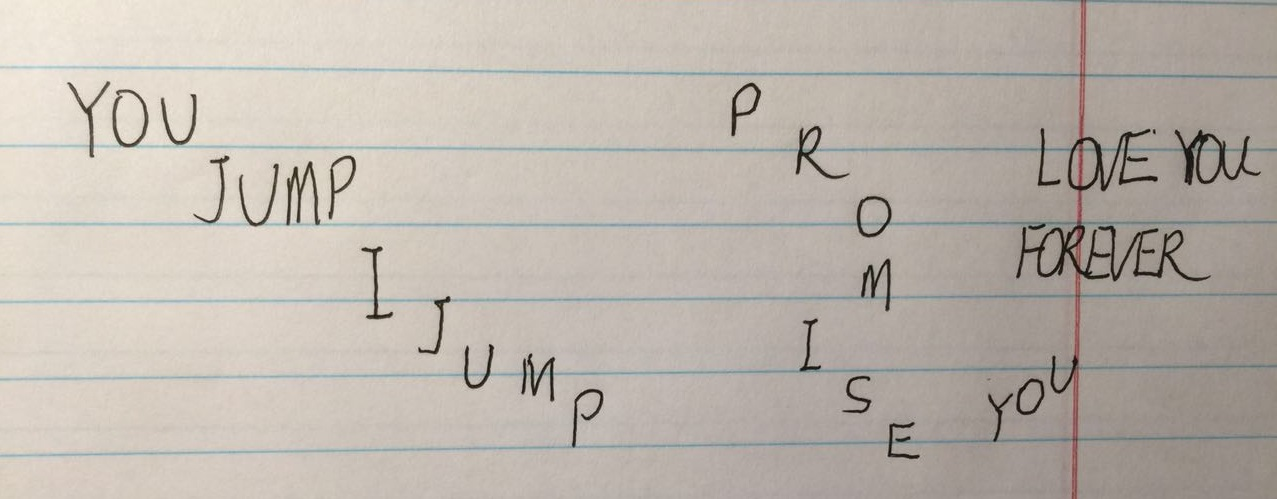 YOU
JUMP
I
JUMP
PROMISE
YOU
LOVE YOU
FOREVER